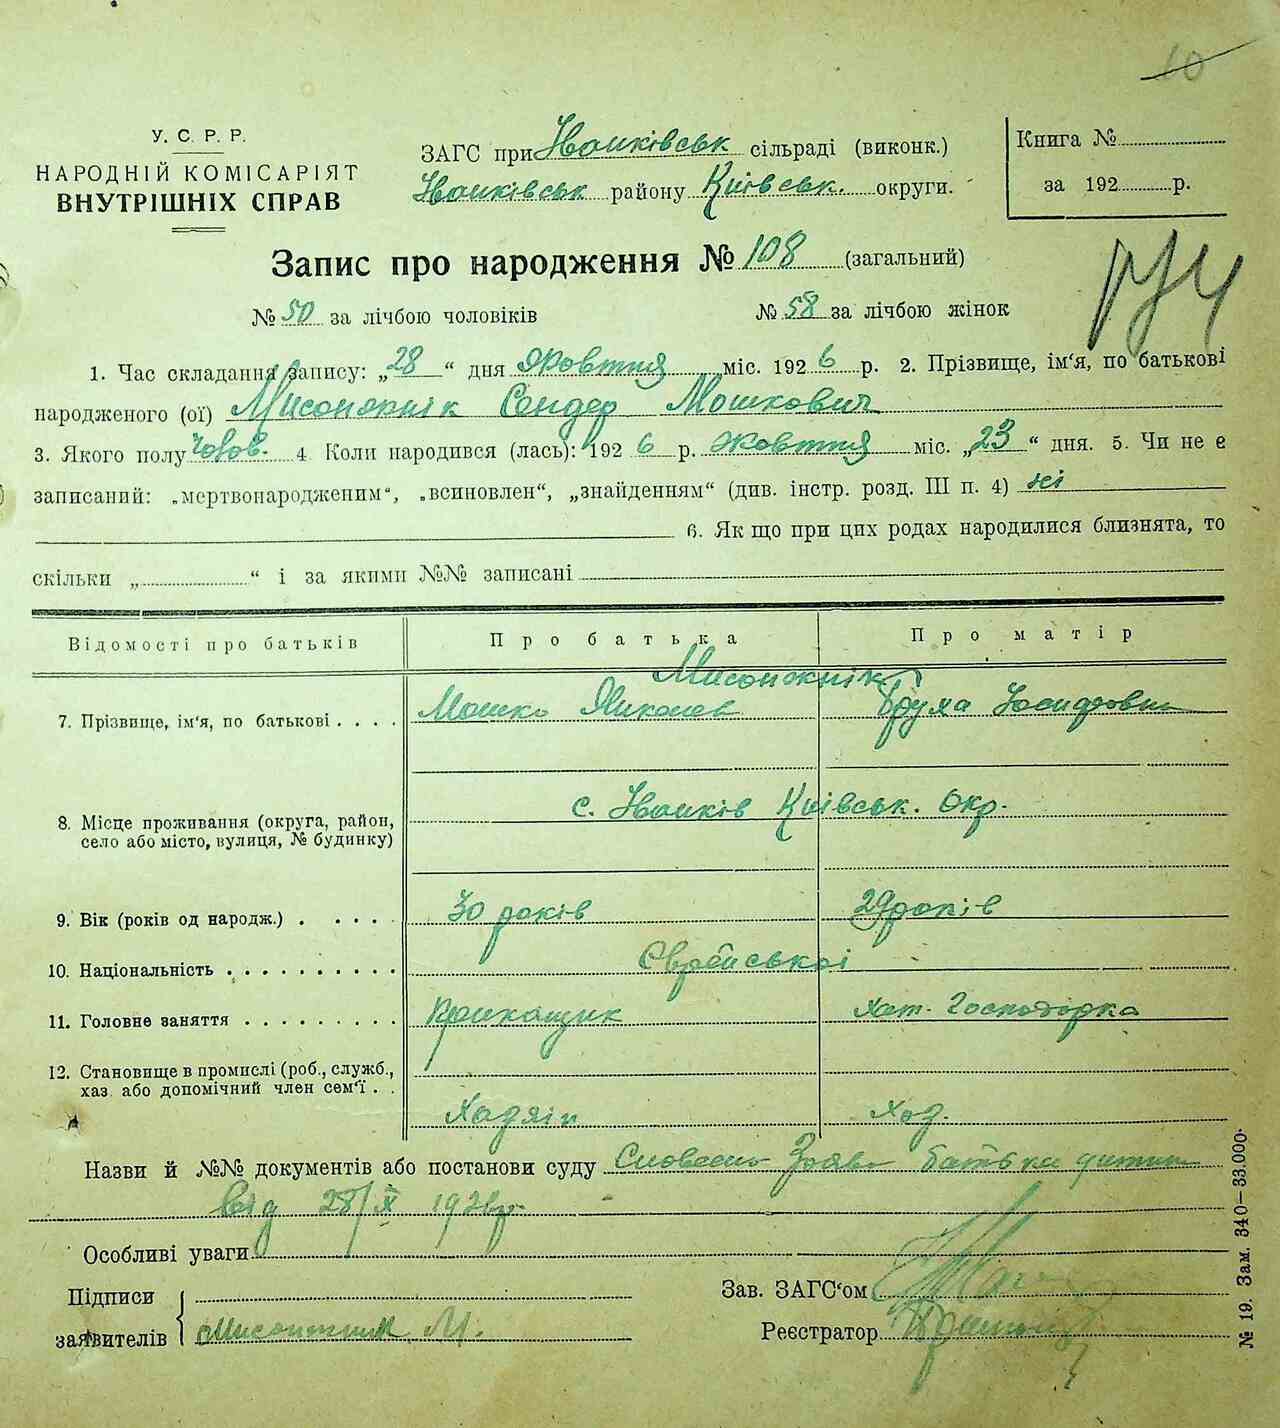 10
У. С. Р. Р.
НАРОДНІЙ КОМІСАРІЯТ
ВНУТРІШНІХ СПРАВ
ЗАГС при Іванківськ сільраді (виконк.)
Іванківськ району Київськ. округи.
Книга №
за 192 р.
Запис про народження № 108 (загальний)
№ 50 за лічбою чоловіків № 58 за лічбою жінок
1. Час складання запису: „28“ дня Жовтня міс. 1926 р. 2. Прізвище, ім‘я, по батькові
народженого (ої) Мисонжнік Сендер Мошкович
3. Якого полу чолов. 4. Коли народився (лась): 1926 р. Жовтня міс. „23“ дня. 5. Чи не є
записаний: „мертвонародженим“, „всиновлен“, „знайденням“ (див. інстр. розд. III п. 4) ні
6. Як що при цих родах народилися близнята, то
скільки „ “ і за якими №№ записані
Відомості про батьків Про батька Про матір
Мисонжнік
7. Прізвище, ім‘я, по батькові . . . . Мошко Бруха
8. Місце проживання (округа, район, село або місто, вулиця, № будинку) с. Іванків Київськ. Окр.
9. Вік (років од народж.) . . . . . 30 років 29 років
10. Національність . . . . . . . . . . Єврейської
11. Головне заняття . . . . . . . . . Прикащик Хат. Господарка
12. Становище в промислі (роб., служб.,
хаз. або допомічний член сем‘ї . .
Хазяїн Хоз.
Назви й №№ документів або постанови суду Словесна Заява батька дитини
від 28/X 1926р.
Особливі уваги
Підписи
заявителів Мисонжник М.
Зав. ЗАГС‘ом
Реєстратор
№ 19. Зам. 340—33.000.